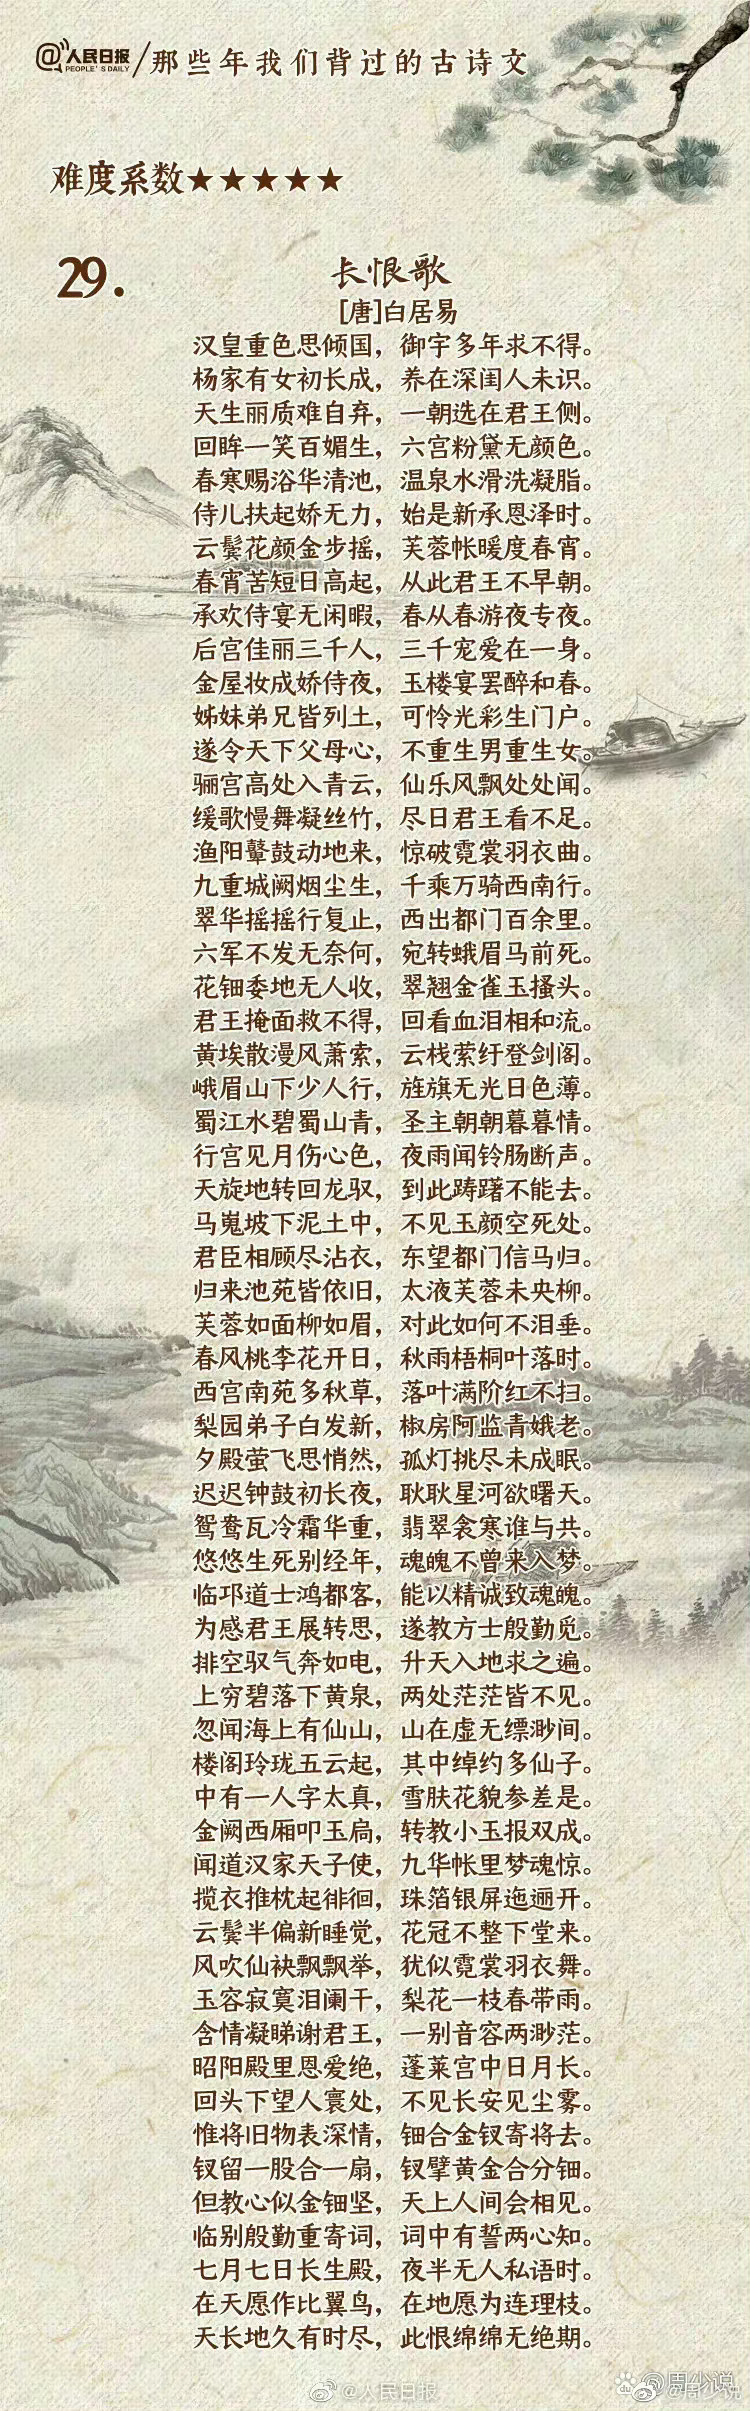 @人民日报 PEOPLE'S DAILY /那些年我们背过的古诗文
难度系数★★★★★
29. 长恨歌
[唐]白居易
汉皇重色思倾国，御宇多年求不得。
杨家有女初长成，养在深闺人未识。
天生丽质难自弃，一朝选在君王侧。
回眸一笑百媚生，六宫粉黛无颜色。
春寒赐浴华清池，温泉水滑洗凝脂。
侍儿扶起娇无力，始是新承恩泽时。
云鬓花颜金步摇，芙蓉帐暖度春宵。
春宵苦短日高起，从此君王不早朝。
承欢侍宴无闲暇，春从春游夜专夜。
后宫佳丽三千人，三千宠爱在一身。
金屋妆成娇侍夜，玉楼宴罢醉和春。
姊妹弟兄皆列土，可怜光彩生门户。
遂令天下父母心，不重生男重生女。
骊宫高处入青云，仙乐风飘处处闻。
缓歌慢舞凝丝竹，尽日君王看不足。
渔阳鼙鼓动地来，惊破霓裳羽衣曲。
九重城阙烟尘生，千乘万骑西南行。
翠华摇摇行复止，西出都门百余里。
六军不发无奈何，宛转蛾眉马前死。
花钿委地无人收，翠翘金雀玉搔头。
君王掩面救不得，回看血泪相和流。
黄埃散漫风萧索，云栈萦纡登剑阁。
峨眉山下少人行，旌旗无光日色薄。
蜀江水碧蜀山青，圣主朝朝暮暮情。
行宫见月伤心色，夜雨闻铃肠断声。
天旋地转回龙驭，到此踌躇不能去。
马嵬坡下泥土中，不见玉颜空死处。
君臣相顾尽沾衣，东望都门信马归。
归来池苑皆依旧，太液芙蓉未央柳。
芙蓉如面柳如眉，对此如何不泪垂。
春风桃李花开日，秋雨梧桐叶落时。
西宫南苑多秋草，落叶满阶红不扫。
梨园弟子白发新，椒房阿监青娥老。
夕殿萤飞思悄然，孤灯挑尽未成眠。
迟迟钟鼓初长夜，耿耿星河欲曙天。
鸳鸯瓦冷霜华重，翡翠衾寒谁与共。
悠悠生死别经年，魂魄不曾来入梦。
临邛道士鸿都客，能以精诚致魂魄。
为感君王展转思，遂教方士殷勤觅。
排空驭气奔如电，升天入地求之遍。
上穷碧落下黄泉，两处茫茫皆不见。
忽闻海上有仙山，山在虚无缥渺间。
楼阁玲珑五云起，其中绰约多仙子。
中有一人字太真，雪肤花貌参差是。
金阙西厢叩玉扃，转教小玉报双成。
闻道汉家天子使，九华帐里梦魂惊。
揽衣推枕起徘徊，珠箔银屏迤逦开。
云鬓半偏新睡觉，花冠不整下堂来。
风吹仙袂飘飘举，犹似霓裳羽衣舞。
玉容寂寞泪阑干，梨花一枝春带雨。
含情凝睇谢君王，一别音容两渺茫。
昭阳殿里恩爱绝，蓬莱宫中日月长。
回头下望人寰处，不见长安见尘雾。
惟将旧物表深情，钿合金钗寄将去。
钗留一股合一扇，钗擘黄金合分钿。
但教心似金钿坚，天上人间会相见。
临别殷勤重寄词，词中有誓两心知。
七月七日长生殿，夜半无人私语时。
在天愿作比翼鸟，在地愿为连理枝。
天长地久有时尽，此恨绵绵无绝期。
@人民日报
@周少说